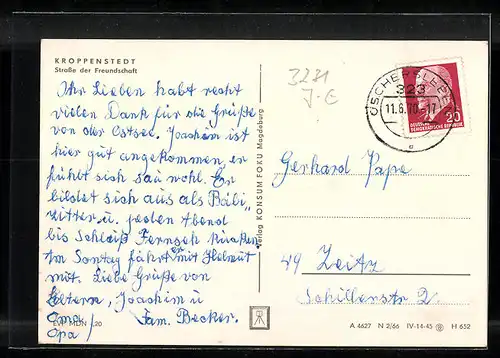 KROPPENSTEDT
Straße der Freundschaft
Ihr Lieben habt recht
vielen Dank für die Grüße
von der Ostsee. Joachim ist
hier gut angekommen er
fühlt sich sauwohl. Er
bildet sich aus als Bäbi
Sitter u. jeden Abend
bis Schluß Fernseh
Am Sonntag fährt er mit Helmut
mit. Liebe Grüße von
Eltern, Joachim u
Oma, Fam. Becker.
Opa
EVP MDN -,20
Verlag KONSUM FOKU Magdeburg
3281
J-E
OSCHERSLEBEN
323
11.8.70-17
20
DEUTSCHE
DEMOKRATISCHE REPUBLIK
Gerhard Pape
49 Zeitz
Schillerstr 2.
A 4627 N 2/66 IV-14-45 H 652